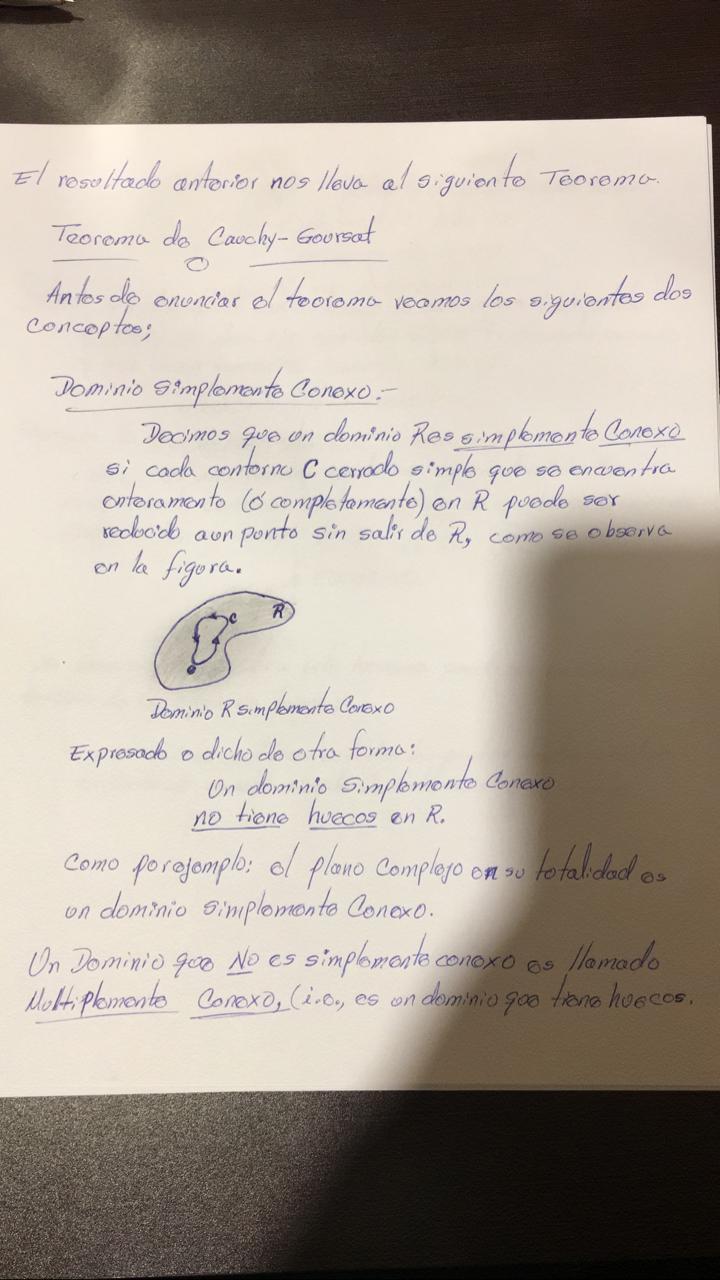 El resultado anterior nos lleva al siguiente Teorema.
Teorema de Cauchy-Goursat
Antes de enunciar el teorema veamos los siguientes dos
conceptos;
Dominio Simplemente Conexo.-
Decimos que un dominio R es simplemente Conexo
si cada contorno C cerrado simple que se encuentra
enteramente (ó completamente) en R puede ser
reducido a un punto sin salir de R, como se observa
en la figura.
C R
Dominio R simplemente Conexo
Expresado o dicho de otra forma:
Un dominio Simplemente Conexo
no tiene huecos en R.
Como por ejemplo: el plano Complejo en su totalidad es
un dominio simplemente Conexo.
Un Dominio que No es simplemente conexo es llamado
Multiplemente Conexo, (i.e., es un dominio que tiene huecos.